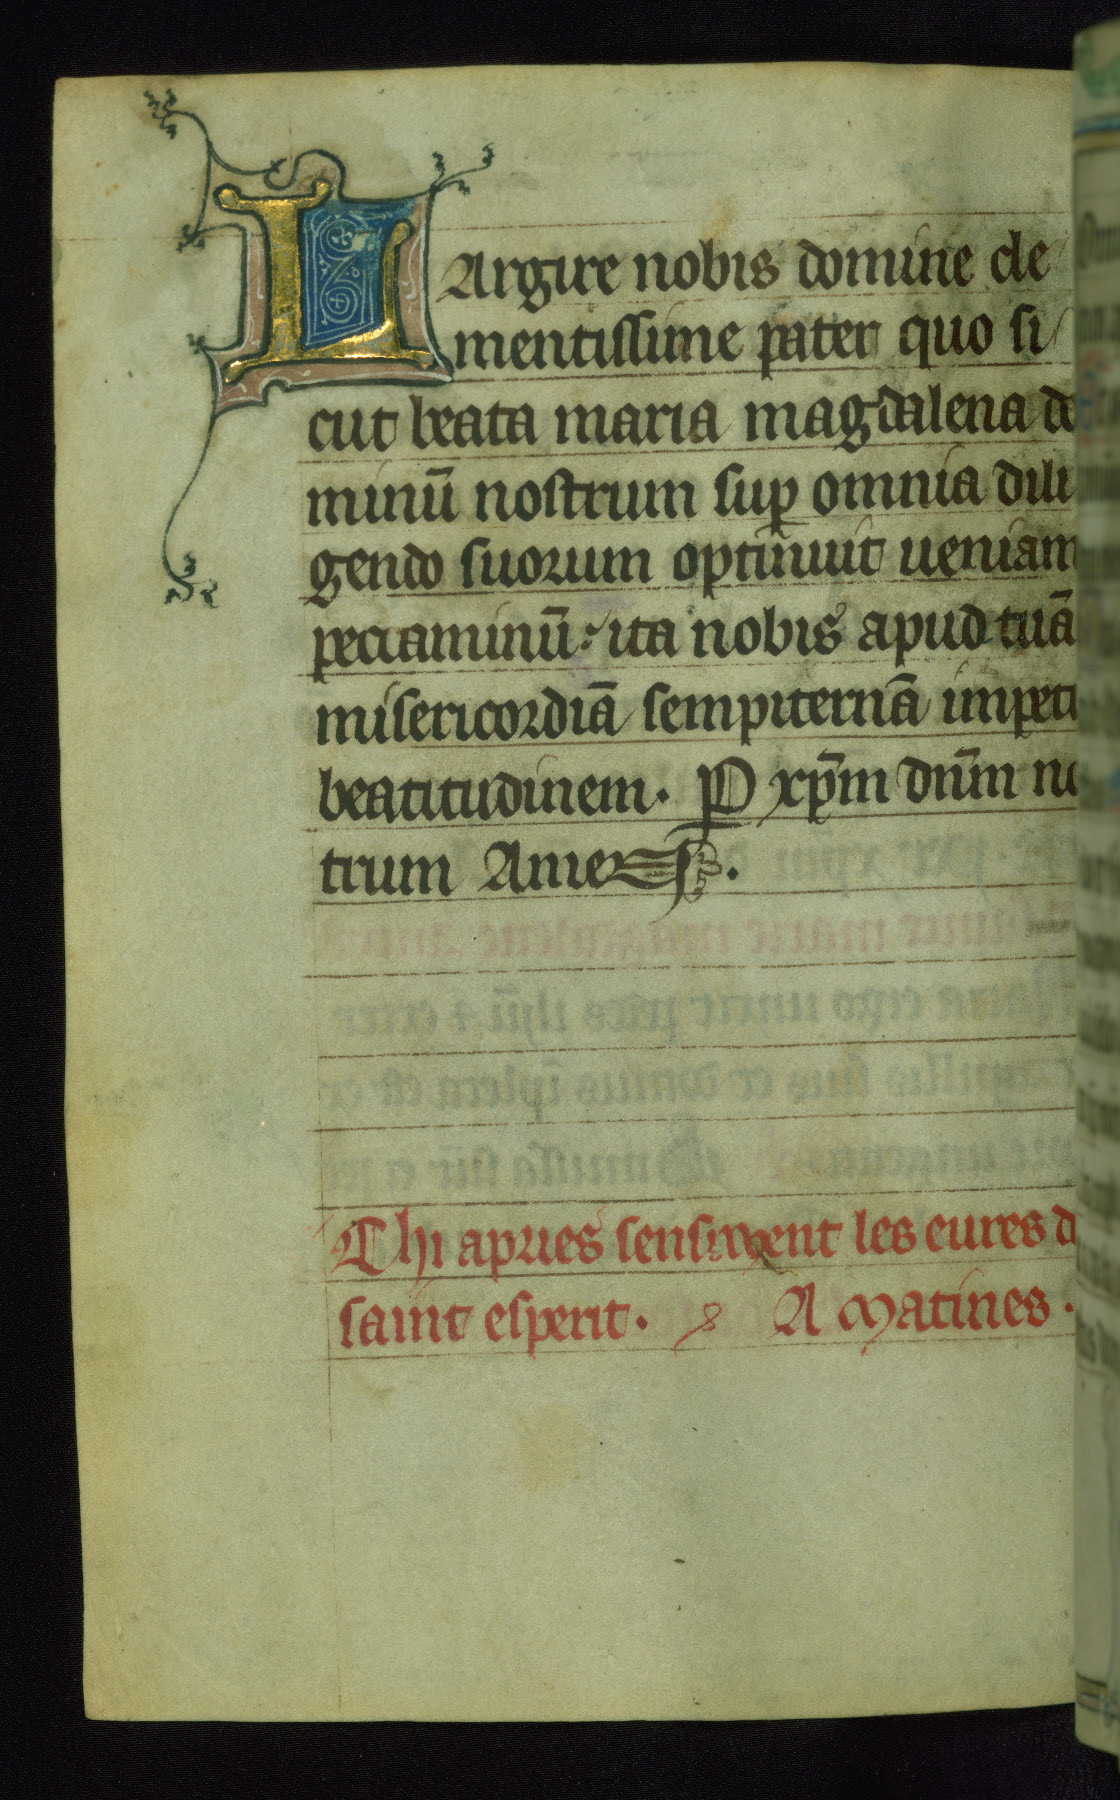 LArgire nobis domine cle
mentissime pater quo si
cut beata maria magdalena do
minū nostrum sup̱ omnia dili
gendo suorum optinuit ueniam
peccaminū: ita nobis apud tuā
misericordiā sempiternā impet
beatitudinem. P xp̄m dn̄m no
trum Amen.
Chi apries sensiwent les eures d
saint esperit. A Matines.